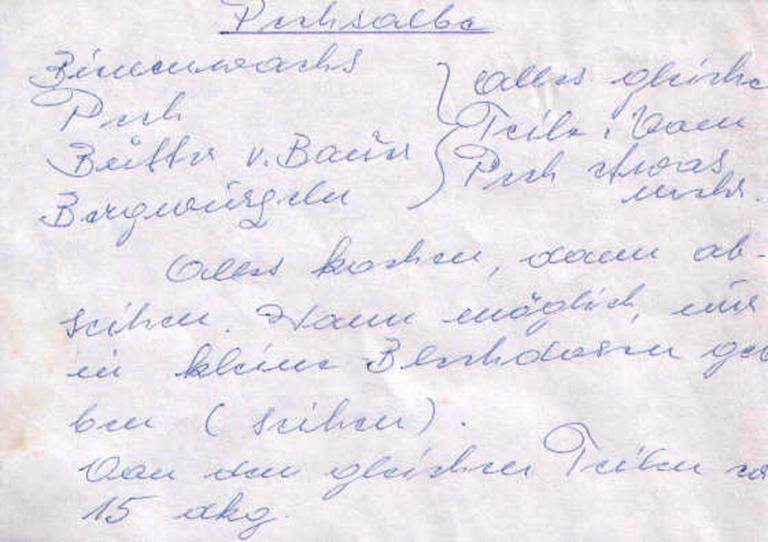 Pechsalbe
Bienenwachs
Pech
Butter v. Baur
Bergwurzeln
Alles gleiche
Teile. Vom
Pech etwas
mehr.
Alles kochen, dann ab-
seihen. Wenn möglich, nur
in kleine Blechdosen ge
ben (seihen).
Von den gleichen Teilen
15 dkg.